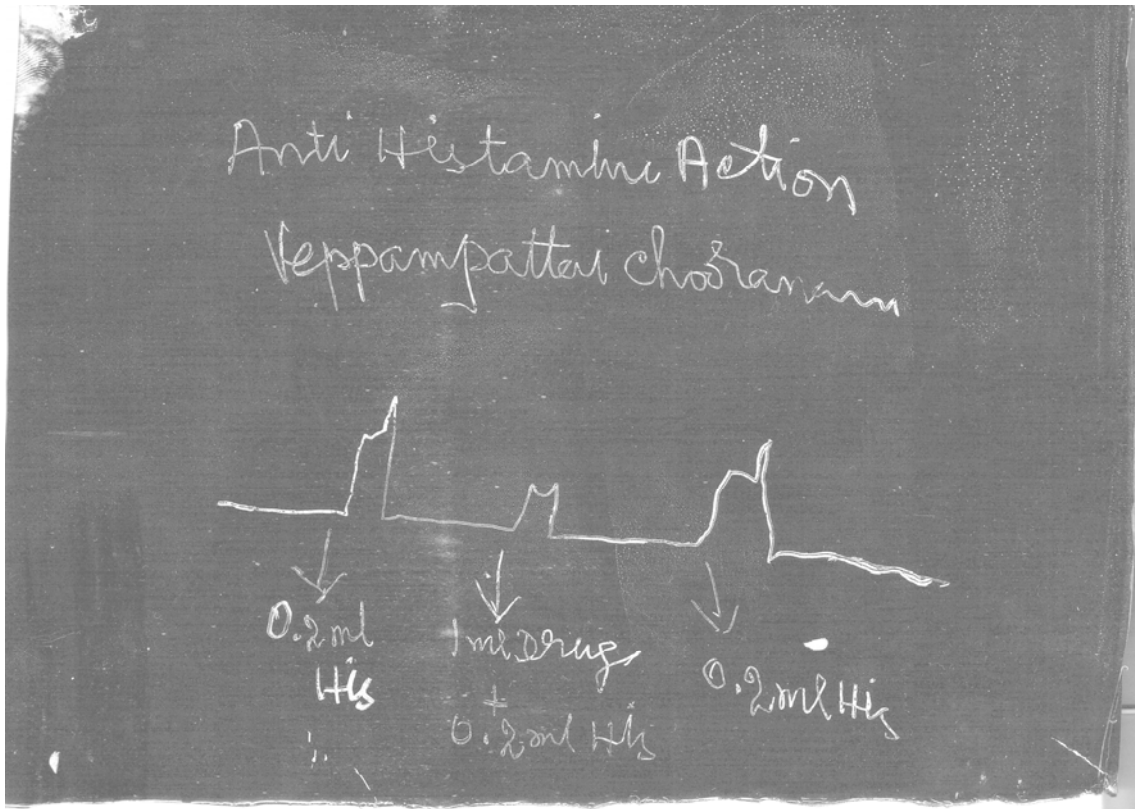 Anti Histamine Action
Veppampattai Chooranam
0.2ml
His
1ml Drug
+
0.2ml His
0.2ml His